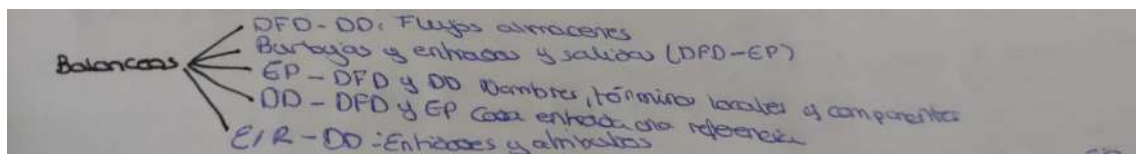 Balanceos
DFD - DD: Flujos almacenes
Burbujas y entradas y salidas (DFD-EP)
EP - DFD y DD Nombres, términos locales y componentes
DD - DFD y EP Cada entrada una referencia
E/R - DD: Entidades y atributos